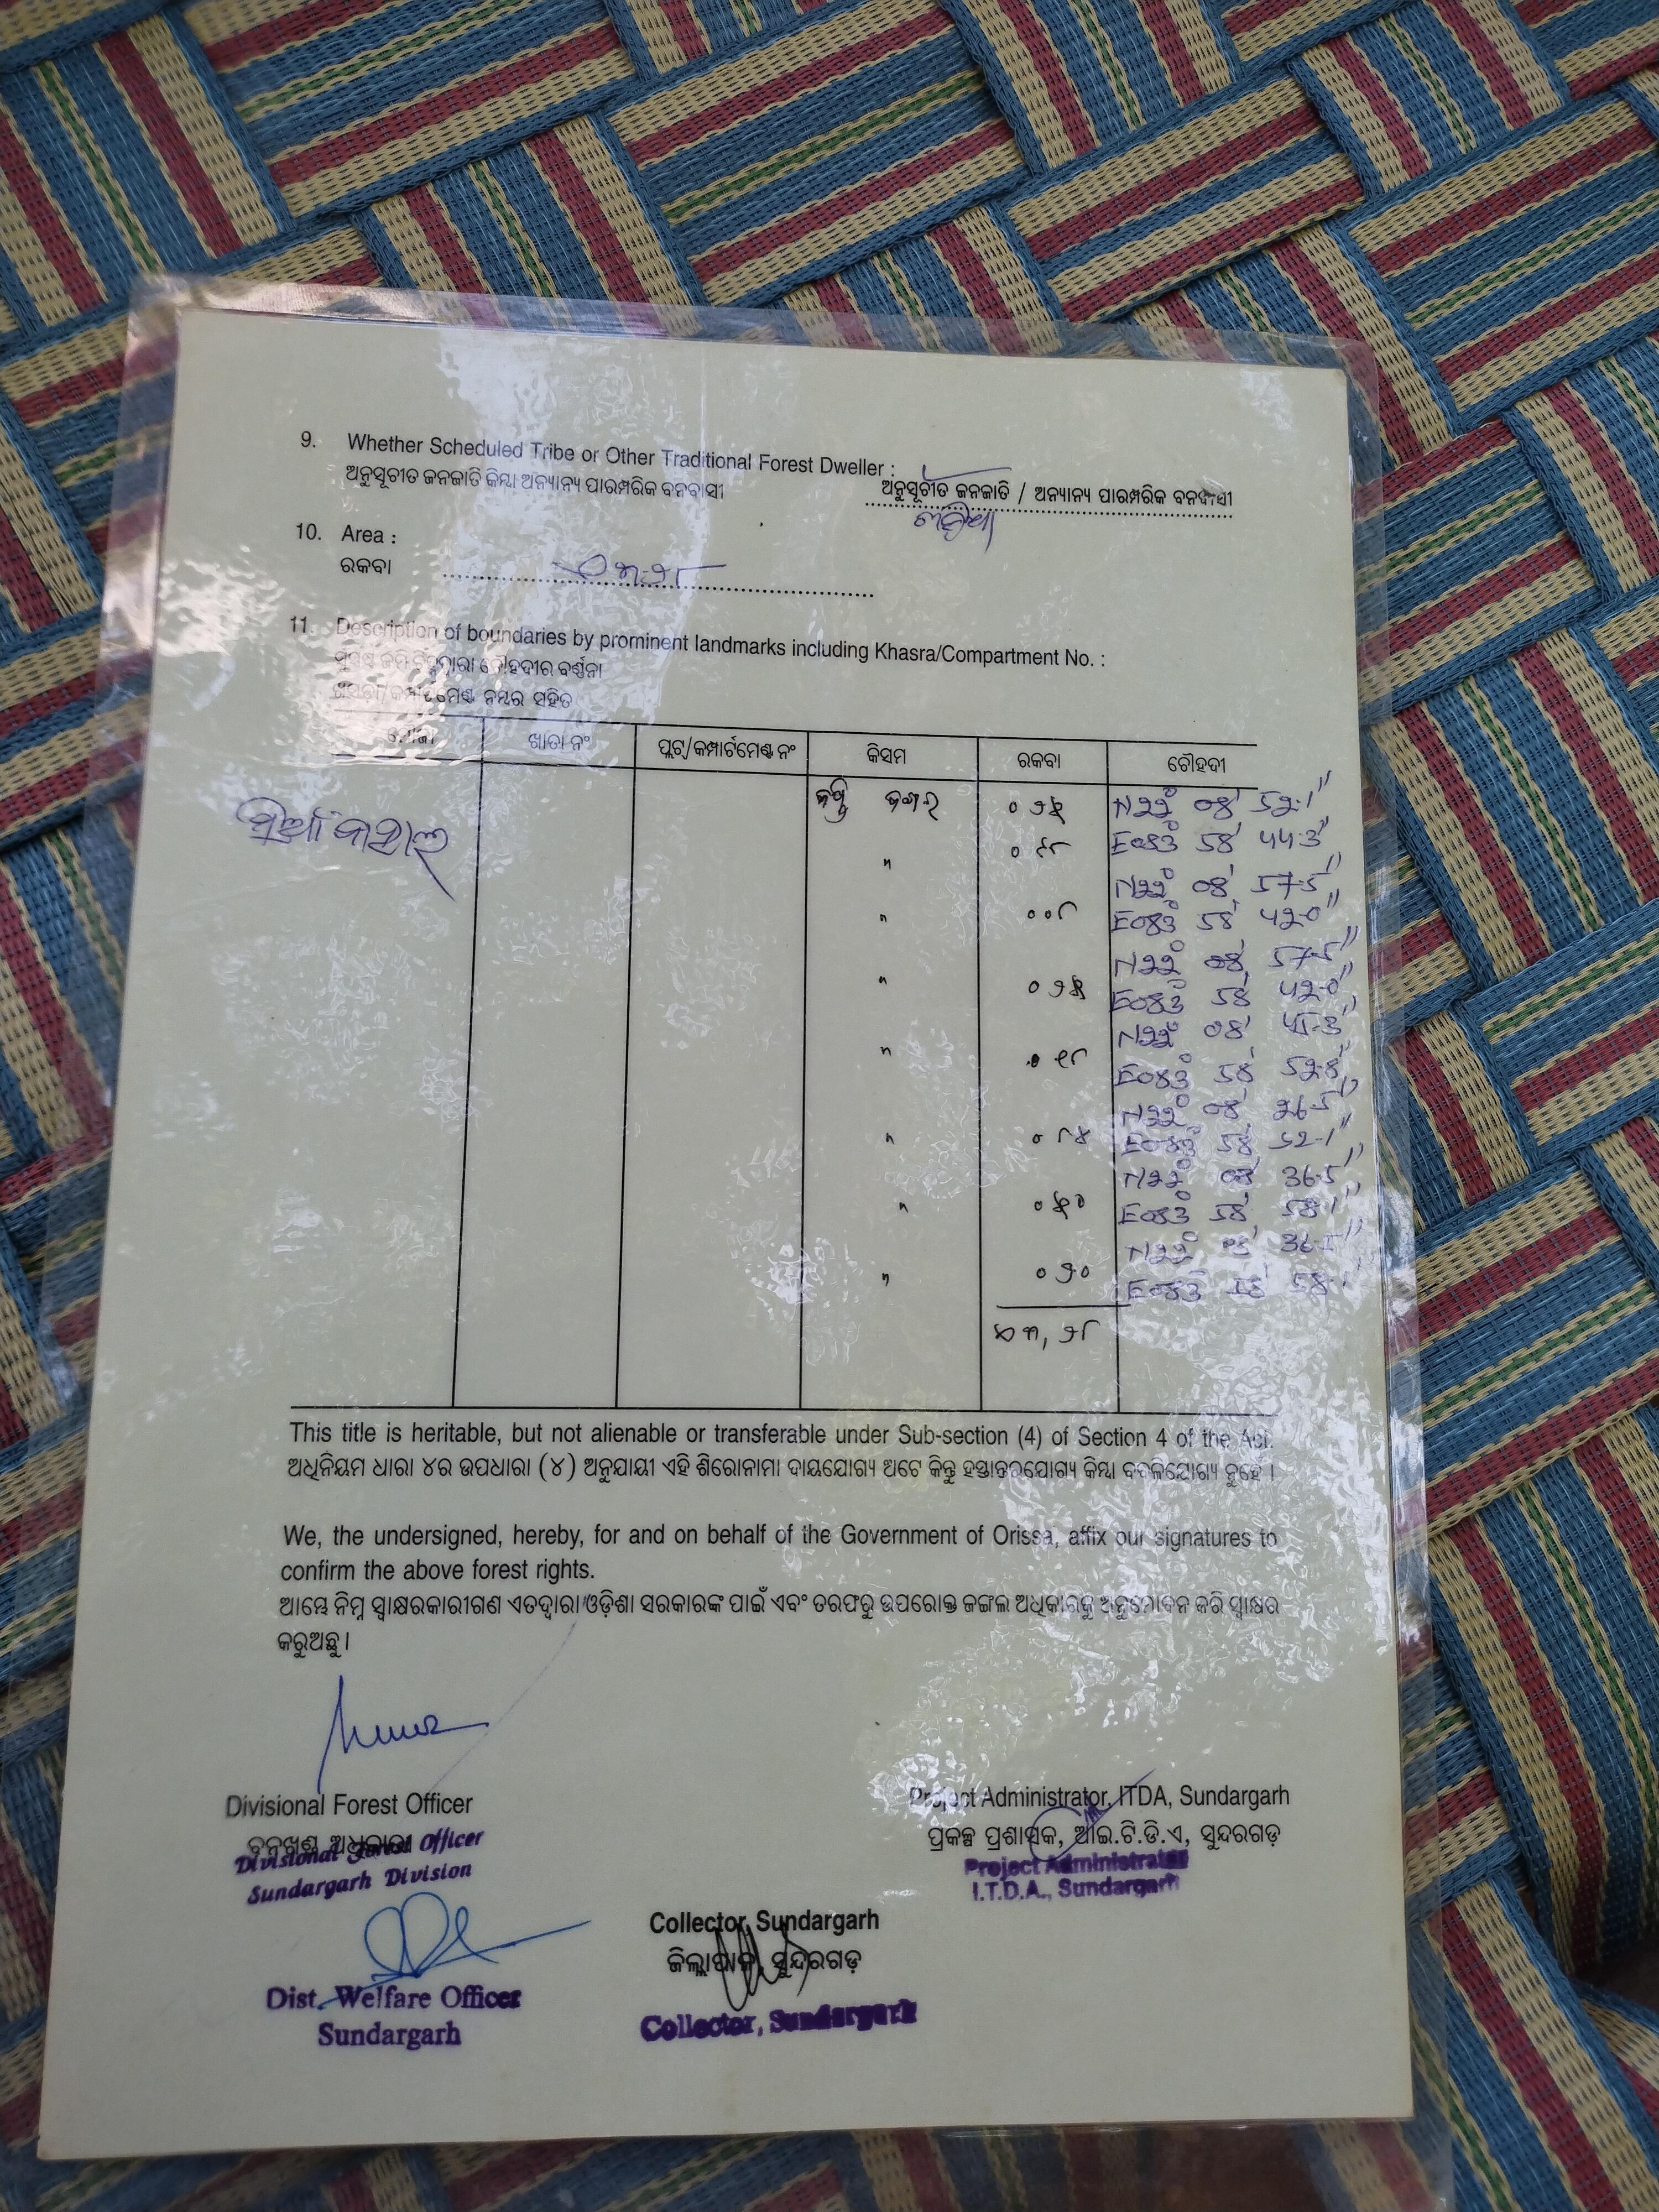 9. Whether Scheduled Tribe or Other Traditional Forest Dweller :
ଅନୁସୂଚୀତ ଜନଜାତି କିମ୍ବା ଅନ୍ୟାନ୍ୟ ପାରମ୍ପରିକ ବନବାସୀ
ଅନୁସୂଚୀତ ଜନଜାତି / ଅନ୍ୟାନ୍ୟ ପାରମ୍ପରିକ ବନବାସୀ
10. Area :
ରକବା
11. Description of boundaries by prominent landmarks including Khasra/Compartment No. :
ଚୌହଦୀର ବର୍ଣ୍ଣନା
କମ୍ପାର୍ଟମେଣ୍ଟ ନମ୍ବର ସହିତ
ମୌଜା ଖାତା ନଂ ପ୍ଲଟ୍/କମ୍ପାର୍ଟମେଣ୍ଟ ନଂ କିସମ ରକବା ଚୌହଦୀ
N22° 08' 52.1"
E083° 58' 44.3"
" N22° 08' 57.5"
" ୦୦୮ E083° 58' 42.0"
N22° 08' 57.5"
" E083° 58' 42.0"
N22° 08' 45.3"
" E083° 58' 52.8"
N22° 08' 26.5"
" E083° 58' 52.1"
N22° 08' 36.5"
" E083° 58' 58.1"
N22° 08' 36.5"
" E083° 58' 58.1"
This title is heritable, but not alienable or transferable under Sub-section (4) of Section 4 of the Act.
ଅଧିନିୟମ ଧାରା ୪ର ଉପଧାରା (୪) ଅନୁଯାୟୀ ଏହି ଶିରୋନାମା ଦାୟଯୋଗ୍ୟ ଅଟେ କିନ୍ତୁ ହସ୍ତାନ୍ତରଯୋଗ୍ୟ କିମ୍ବା ବଦଳିଯୋଗ୍ୟ ନୁହେଁ ।
We, the undersigned, hereby, for and on behalf of the Government of Orissa, affix our signatures to
confirm the above forest rights.
ଆମ୍ଭେ ନିମ୍ନ ସ୍ୱାକ୍ଷରକାରୀଗଣ ଏତଦ୍ୱାରା ଓଡ଼ିଶା ସରକାରଙ୍କ ପାଇଁ ଏବଂ ତରଫରୁ ଉପରୋକ୍ତ ଜଙ୍ଗଲ ଅଧିକାରକୁ ଅନୁମୋଦନ କରି ସ୍ୱାକ୍ଷର
କରୁଅଛୁ ।
Divisional Forest Officer
ବନଖଣ୍ଡ ଅଧିକାରୀ
Divisional Forest Officer
Sundargarh Division
Project Administrator, ITDA, Sundargarh
ପ୍ରକଳ୍ପ ପ୍ରଶାସକ, ଆଇ.ଟି.ଡି.ଏ, ସୁନ୍ଦରଗଡ଼
Project Administrator
I.T.D.A., Sundargarh
Collector, Sundargarh
ଜିଲ୍ଲାପାଳ, ସୁନ୍ଦରଗଡ଼
Collector, Sundargarh
Dist. Welfare Officer
Sundargarh